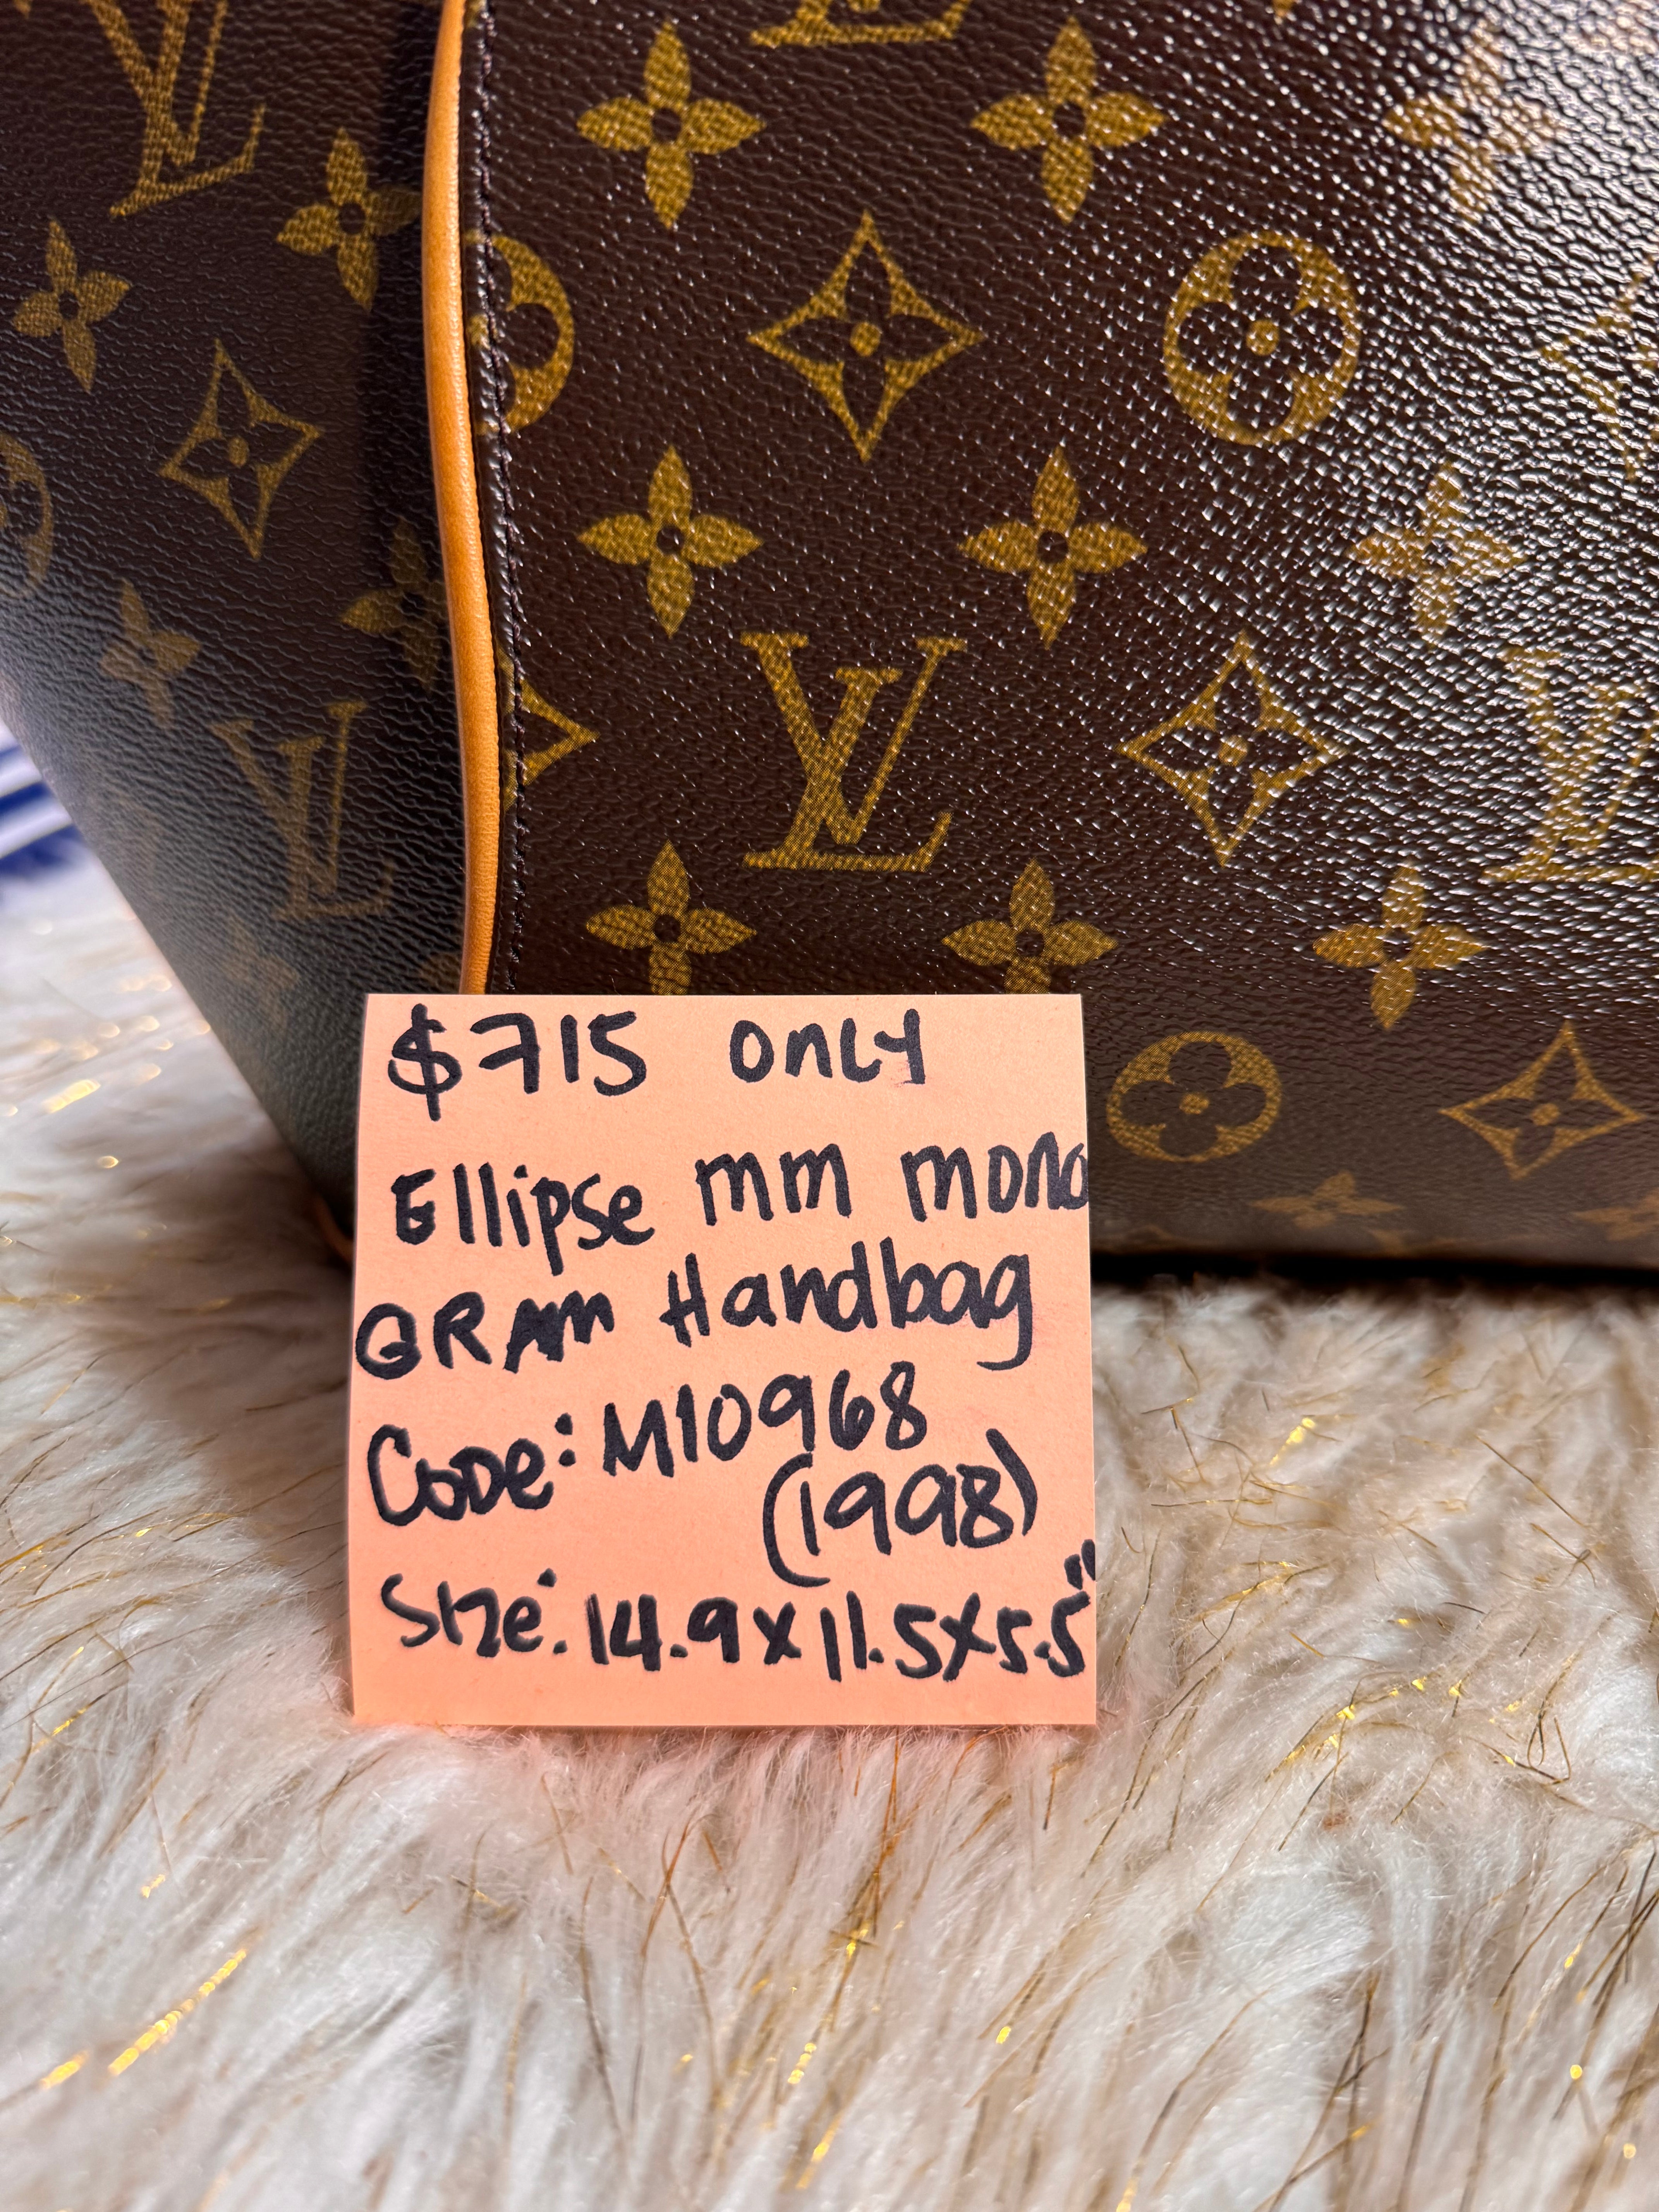 $715 only
Ellipse mm mono
GRAM Handbag
Code: M10968
(1998)
Size: 14.9x11.5x5.5"